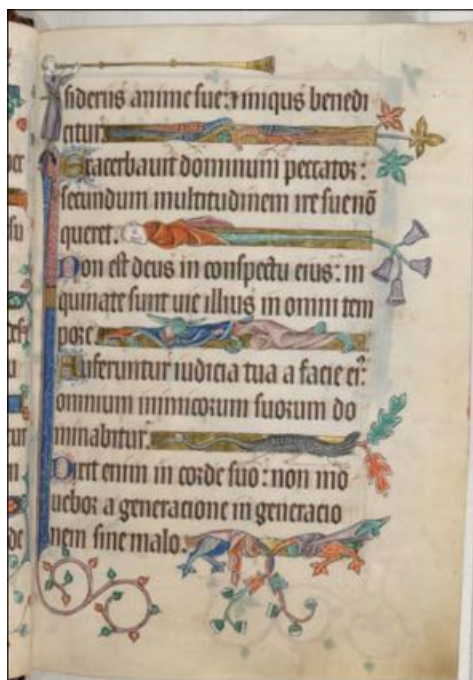 siderijs anime sue: ⁊ iniquus benedi
citur.
Exacerbauit dominum peccator:
secundum multitudinem ire sue nō
queret.
Non est deus in conspectu eius: in
quinate sunt uie illius in omni tem
pore.
Auferuntur iudicia tua a facie eiꝰ:
omnium inimicorum suorum do
minabitur.
Dixit enim in corde suo: non mo
uebor a generacione in generacio
nem sine malo.